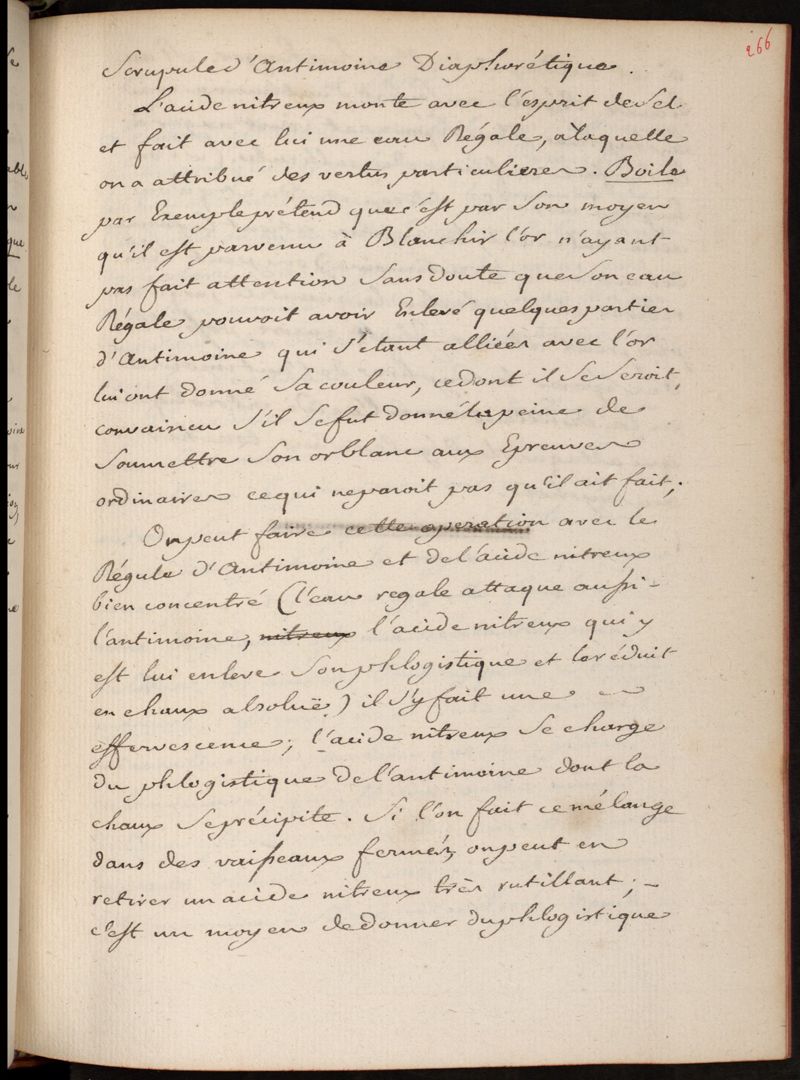 266
Scrupule d'Antimoine Diaphorétique.
L'acide nitreux monte avec l'esprit de Sel
et fait avec lui une eau Régale, a laquelle
on a attribué des vertus particulieres. Boile
par Exemple prétend que c'est par Son moyen
qu'il est parvenu à Blanchir l'or n'ayant
pas fait attention Sans doute que Son eau
Régale pouvoit avoir Enlevé quelques parties
d'Antimoine qui S'étant alliées avec l'or
lui ont donné Sa couleur, ce dont il Se Seroit
convaincu S'il Se fut donné la peine de
Soumettre Son or blanc aux Epreuves
ordinaires ce qui neparoit pas qu'il ait fait;
On peut faire cette operation avec le
Régule d'Antimoine et de l'acide nitreux
bien concentré (l'eau regale attaque aussi-
l'antimoine, nitreux l'acide nitreux qui y
est lui enleve Son phlogistique et le réduit
en chaux absoluë) il S'y fait une
effervescence; l'acide nitreux Se charge
du phlogistique de l'antimoine dont la
chaux Se précipite. Si l'on fait ce mélange
dans des vaisseaux fermés, on peut en
retirer un acide nitreux très rutillant; -
c'est un moyen de donner du phlogistique